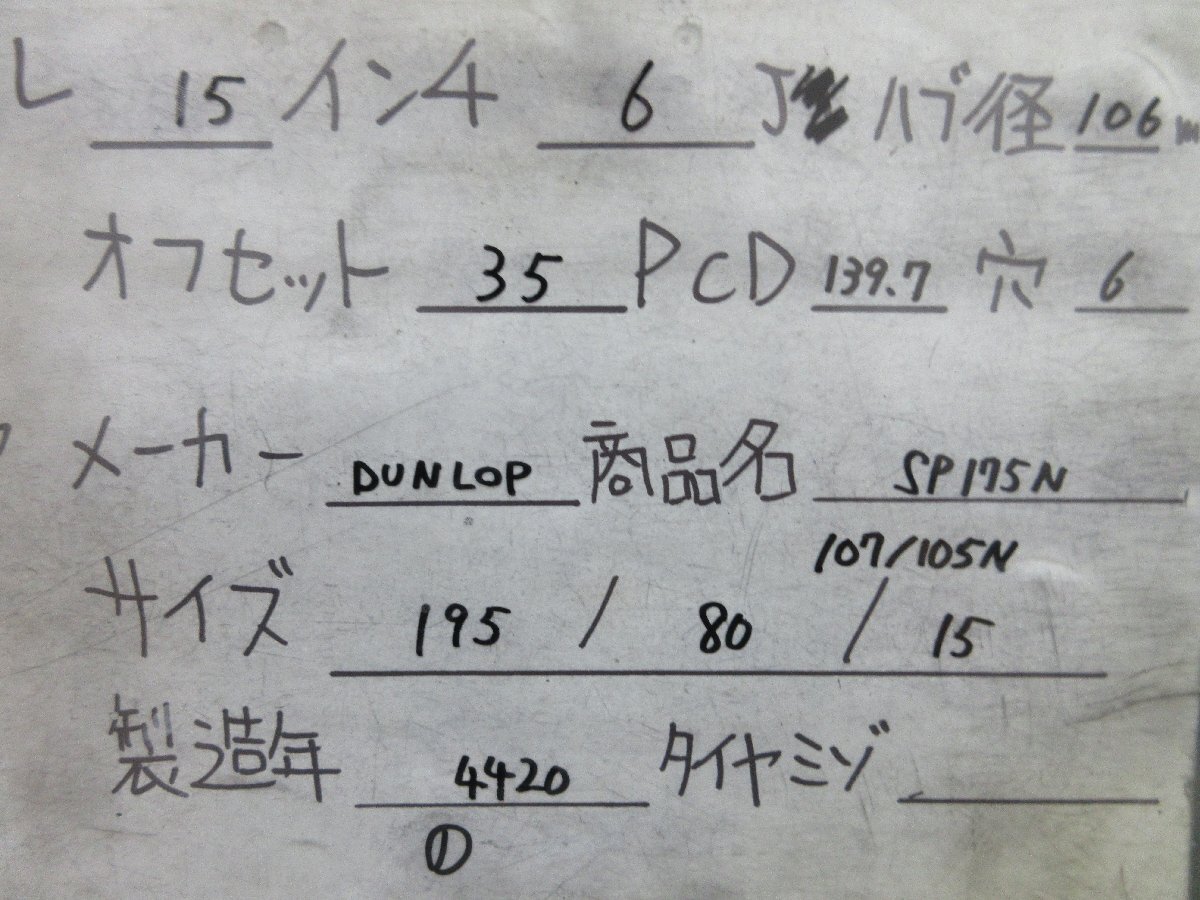 ル 15 インチ 6 J ハブ径 106 m
オフセット 35 PCD 139.7 穴 6
メーカー DUNLOP 商品名 SP175N
107/105N
サイズ 195 / 80 / 15
製造年 4420 タイヤミゾ
①